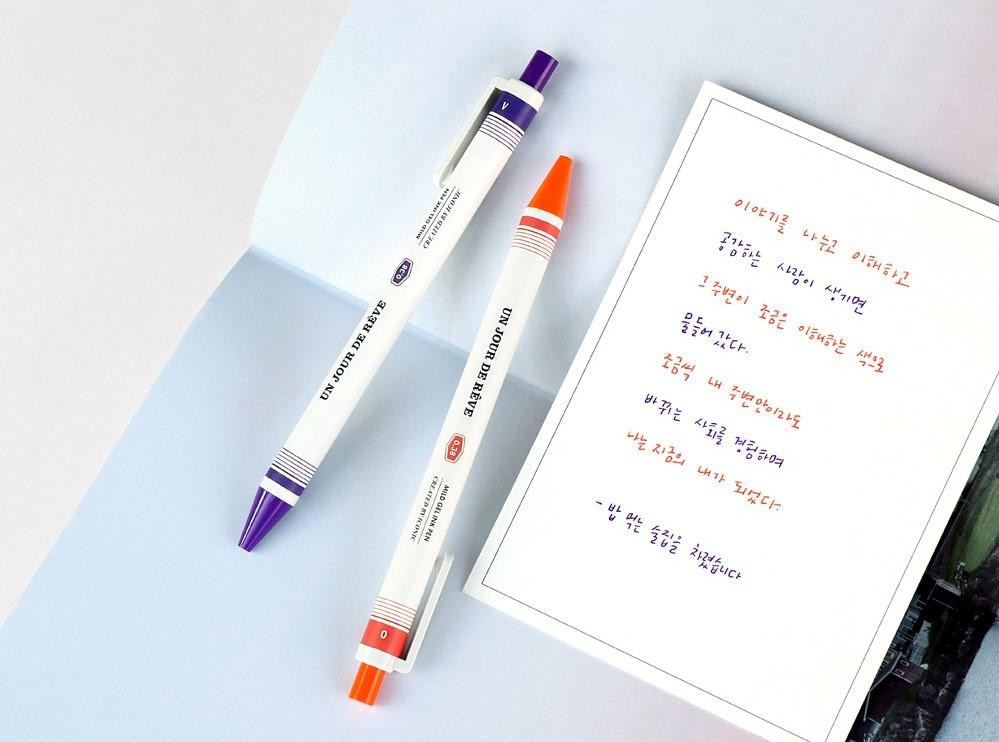 V
MILD GEL INK PEN
CREATED BY ICONIC
0.38
UN JOUR DE RÊVE
UN JOUR DE RÊVE
0.38
MILD GEL INK PEN
CREATED BY ICONIC
O
이야기를 나누고 이해하고
공감하는 사람이 생기면
그 주변이 조금은 이해하는 색으로
물들어 갔다.
조금씩 내 주변만이라도
바뀌는 사회를 경험하며
나는 지금의 내가 되었다.
- 밥 먹는 술집을 차렸습니다